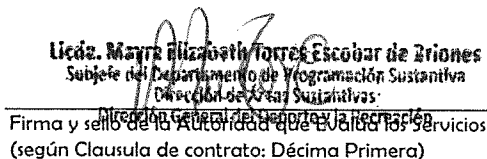 Licda. Mayra Elizabeth Torres Escobar de Briones
Subjefe del Departamento de Programación Sustantiva
Dirección de Áreas Sustantivas
Dirección General del Deporte y la Recreación
Firma y sello de la Autoridad que Evalúa los Servicios
(según Clausula de contrato: Décima Primera)